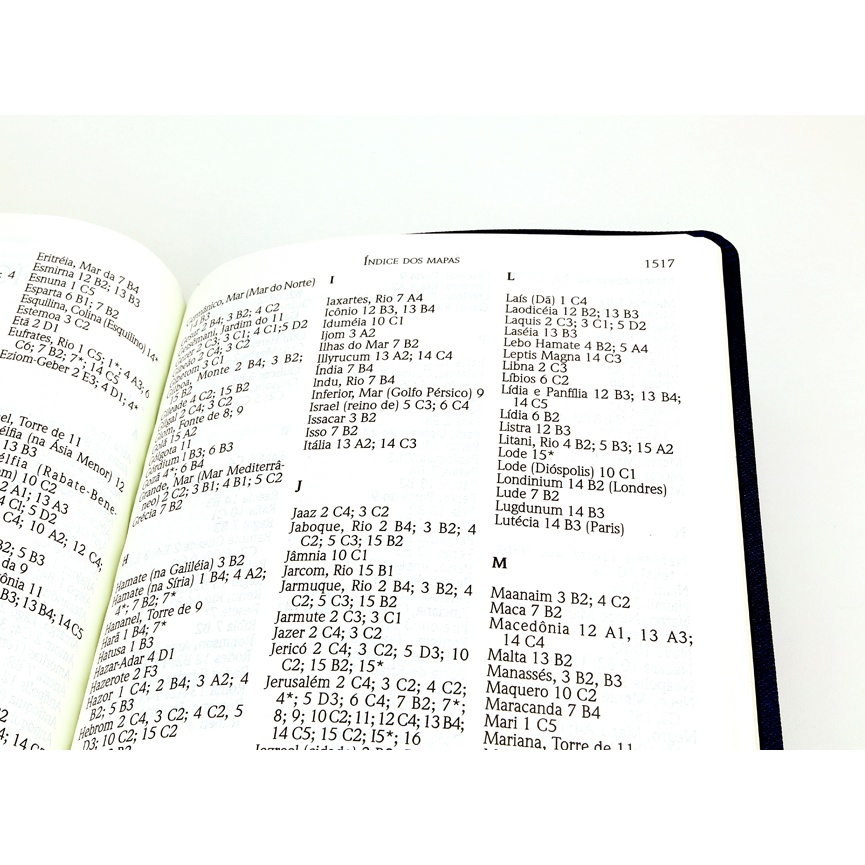 Eritréia, Mar da 7 B4
Esmirna 12 B2; 13 B3
Esnuna 1 C5
Esparta 6 B1; 7 B2
Esquilina, Colina (Esquilino) 14*
Estemoa 3 C2
Etã 2 D1
Eufrates, Rio 1 C5; 1*; 4 A3; 6
C6; 7 B2; 7*; 14 C5
Eziom-Geber 2 E3; 4 D1; 4*
Torre de 11
(na Ásia Menor) 12
13 B3
(Rabate-Bene-
10 C2
2 A1; 13 A3
4 C1; 5 D2
C4; 10 A2; 12 C4;
B2; 5 B3
da 9
11
B3; 13 B4; 14 C5
ÍNDICE DOS MAPAS
1517
Mar (Mar do Norte)
2 B4; 3 B2; 4 C2
Jardim do 11
2 C3; 3 C1; 4 C1; 5 D2
2 C4; 3 C2
3 C1
Monte 2 B4; 3 B2;
15 B2
4 C2; 15 B2
2 C4; 3 C2
Fonte de 8; 9
15 A2
Gólgota 11
Górdium 1 B3; 6 B3
4*; 6 B4
Grande, Mar (Mar Mediterrâ-
neo) 2 C2; 3 B1; 4 B1; 5 C2
Grécia 7 B2
H
Hamate (na Galiléia) 3 B2
Hamate (na Síria) 1 B4; 4 A2;
4*; 7 B2; 7*
Hananel, Torre de 9
Harã 1 B4; 7*
Hatusa 1 B3
Hazar-Adar 4 D1
Hazerote 2 F3
Hazor 1 C4; 2 B4; 3 A2; 4
B2; 5 B3
Hebrom 2 C4, 3 C2; 4 C2, 5
D3; 10 C2; 15 C2
I
Iaxartes, Rio 7 A4
Icônio 12 B3, 13 B4
Iduméia 10 C1
Ijom 3 A2
Ilhas do Mar 7 B2
Illyrucum 13 A2; 14 C4
Índia 7 B4
Indu, Rio 7 B4
Inferior, Mar (Golfo Pérsico) 9
Israel (reino de) 5 C3; 6 C4
Issacar 3 B2
Isso 7 B2
Itália 13 A2; 14 C3
J
Jaaz 2 C4; 3 C2
Jaboque, Rio 2 B4; 3 B2; 4
C2; 5 C3; 15 B2
Jâmnia 10 C1
Jarcom, Rio 15 B1
Jarmuque, Rio 2 B4; 3 B2; 4
C2; 5 C3; 15 B2
Jarmute 2 C3; 3 C1
Jazer 2 C4; 3 C2
Jericó 2 C4; 3 C2; 5 D3; 10
C2; 15 B2; 15*
Jerusalém 2 C4; 3 C2; 4 C2;
4*; 5 D3; 6 C4; 7 B2; 7*;
8; 9; 10 C2; 11; 12 C4; 13 B4;
14 C5; 15 C2; I5*; 16
Jezreel (cidade)
L
Laís (Dã) 1 C4
Laodicéia 12 B2; 13 B3
Laquis 2 C3; 3 C1; 5 D2
Laséia 13 B3
Lebo Hamate 4 B2; 5 A4
Leptis Magna 14 C3
Libna 2 C3
Líbios 6 C2
Lídia e Panfília 12 B3; 13 B4;
14 C5
Lídia 6 B2
Listra 12 B3
Litani, Rio 4 B2; 5 B3; 15 A2
Lode 15*
Lode (Dióspolis) 10 C1
Londinium 14 B2 (Londres)
Lude 7 B2
Lugdunum 14 B3
Lutécia 14 B3 (Paris)
M
Maanaim 3 B2; 4 C2
Maca 7 B2
Macedônia 12 A1, 13 A3;
14 C4
Malta 13 B2
Manassés, 3 B2, B3
Maquero 10 C2
Maracanda 7 B4
Mari 1 C5
Mariana, Torre de 11